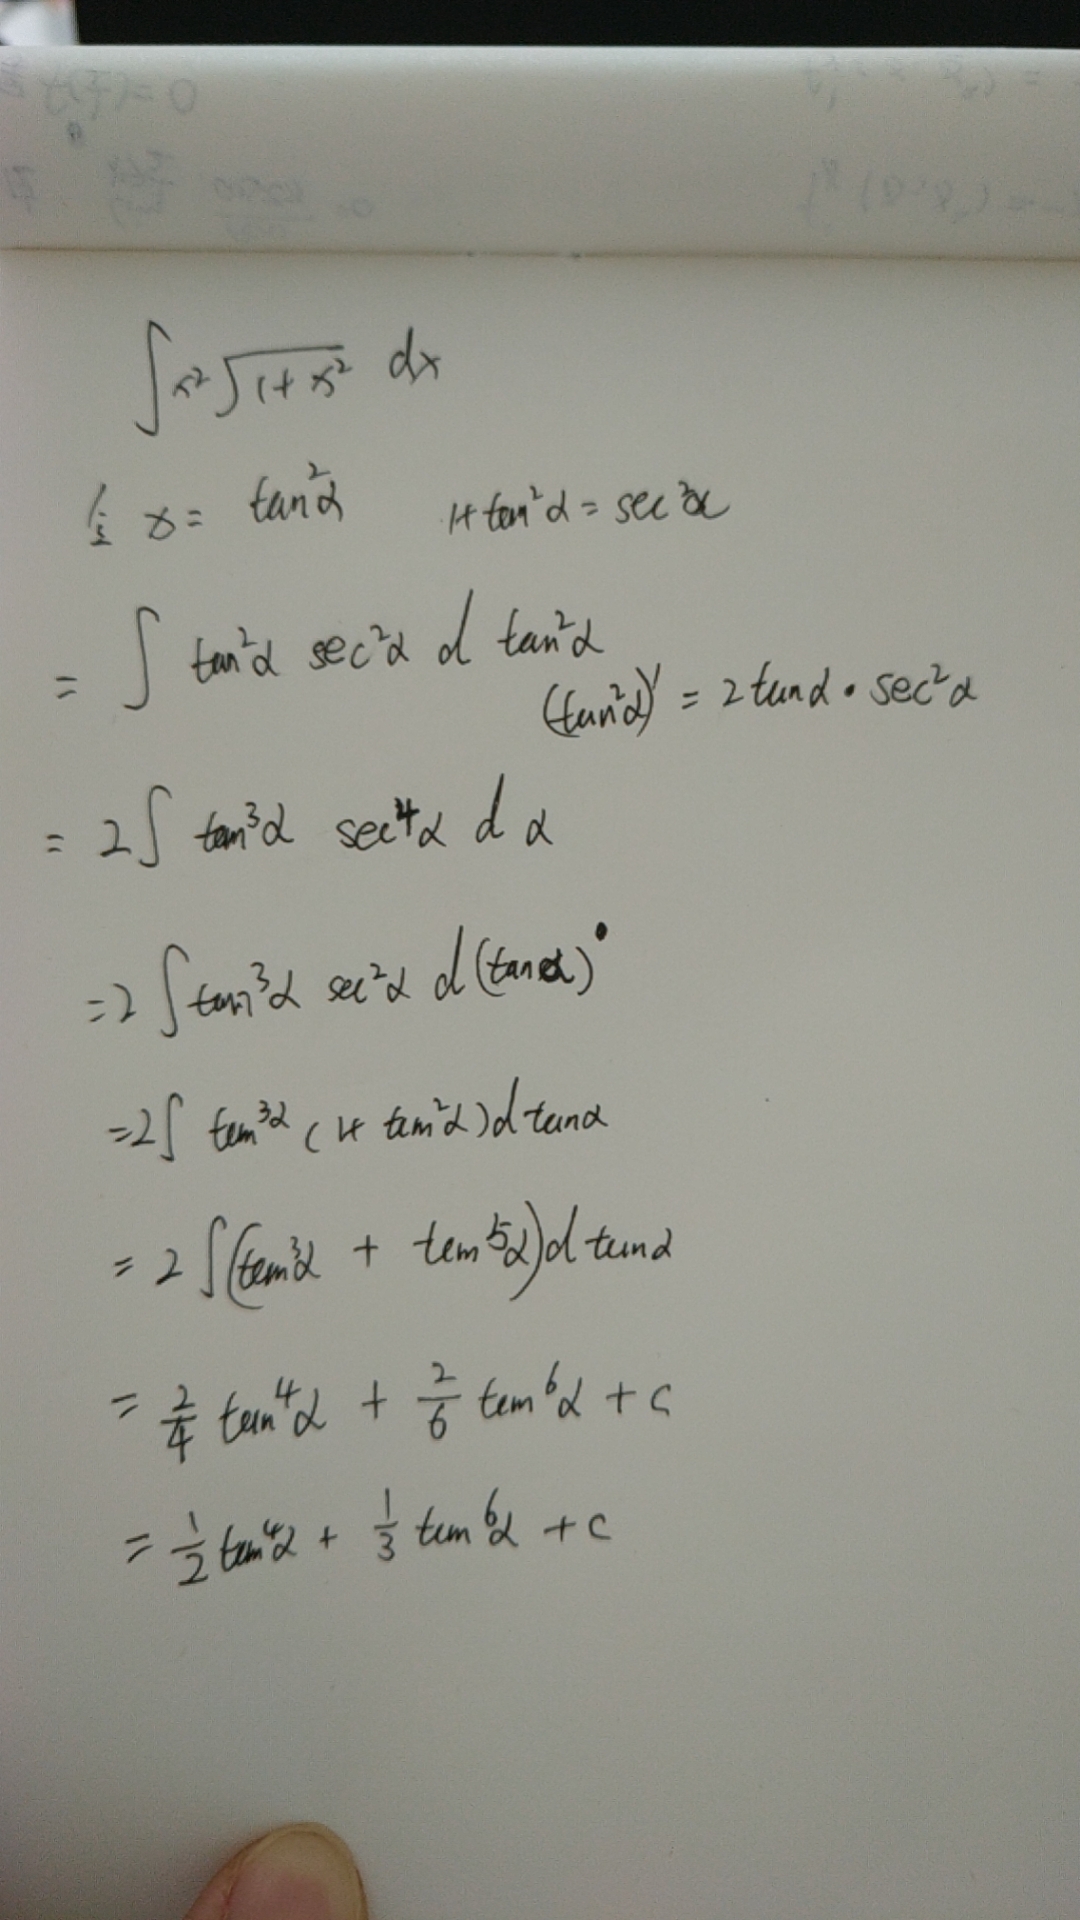 ∫x²√(1+x²) dx
令 x = tan²α 1+tan²α = sec²α
= ∫ tan²α sec²α d tan²α
(tan²α)' = 2tanα · sec²α
= 2∫ tan³α sec⁴α d α
=2 ∫tan³α sec²α d(tanα)
=2∫ tan³α (1+tan²α)d tanα
= 2 ∫(tan³α + tan⁵α)d tanα
= 2/4 tan⁴α + 2/6 tan⁶α + c
= 1/2 tan⁴α + 1/3 tan⁶α + c